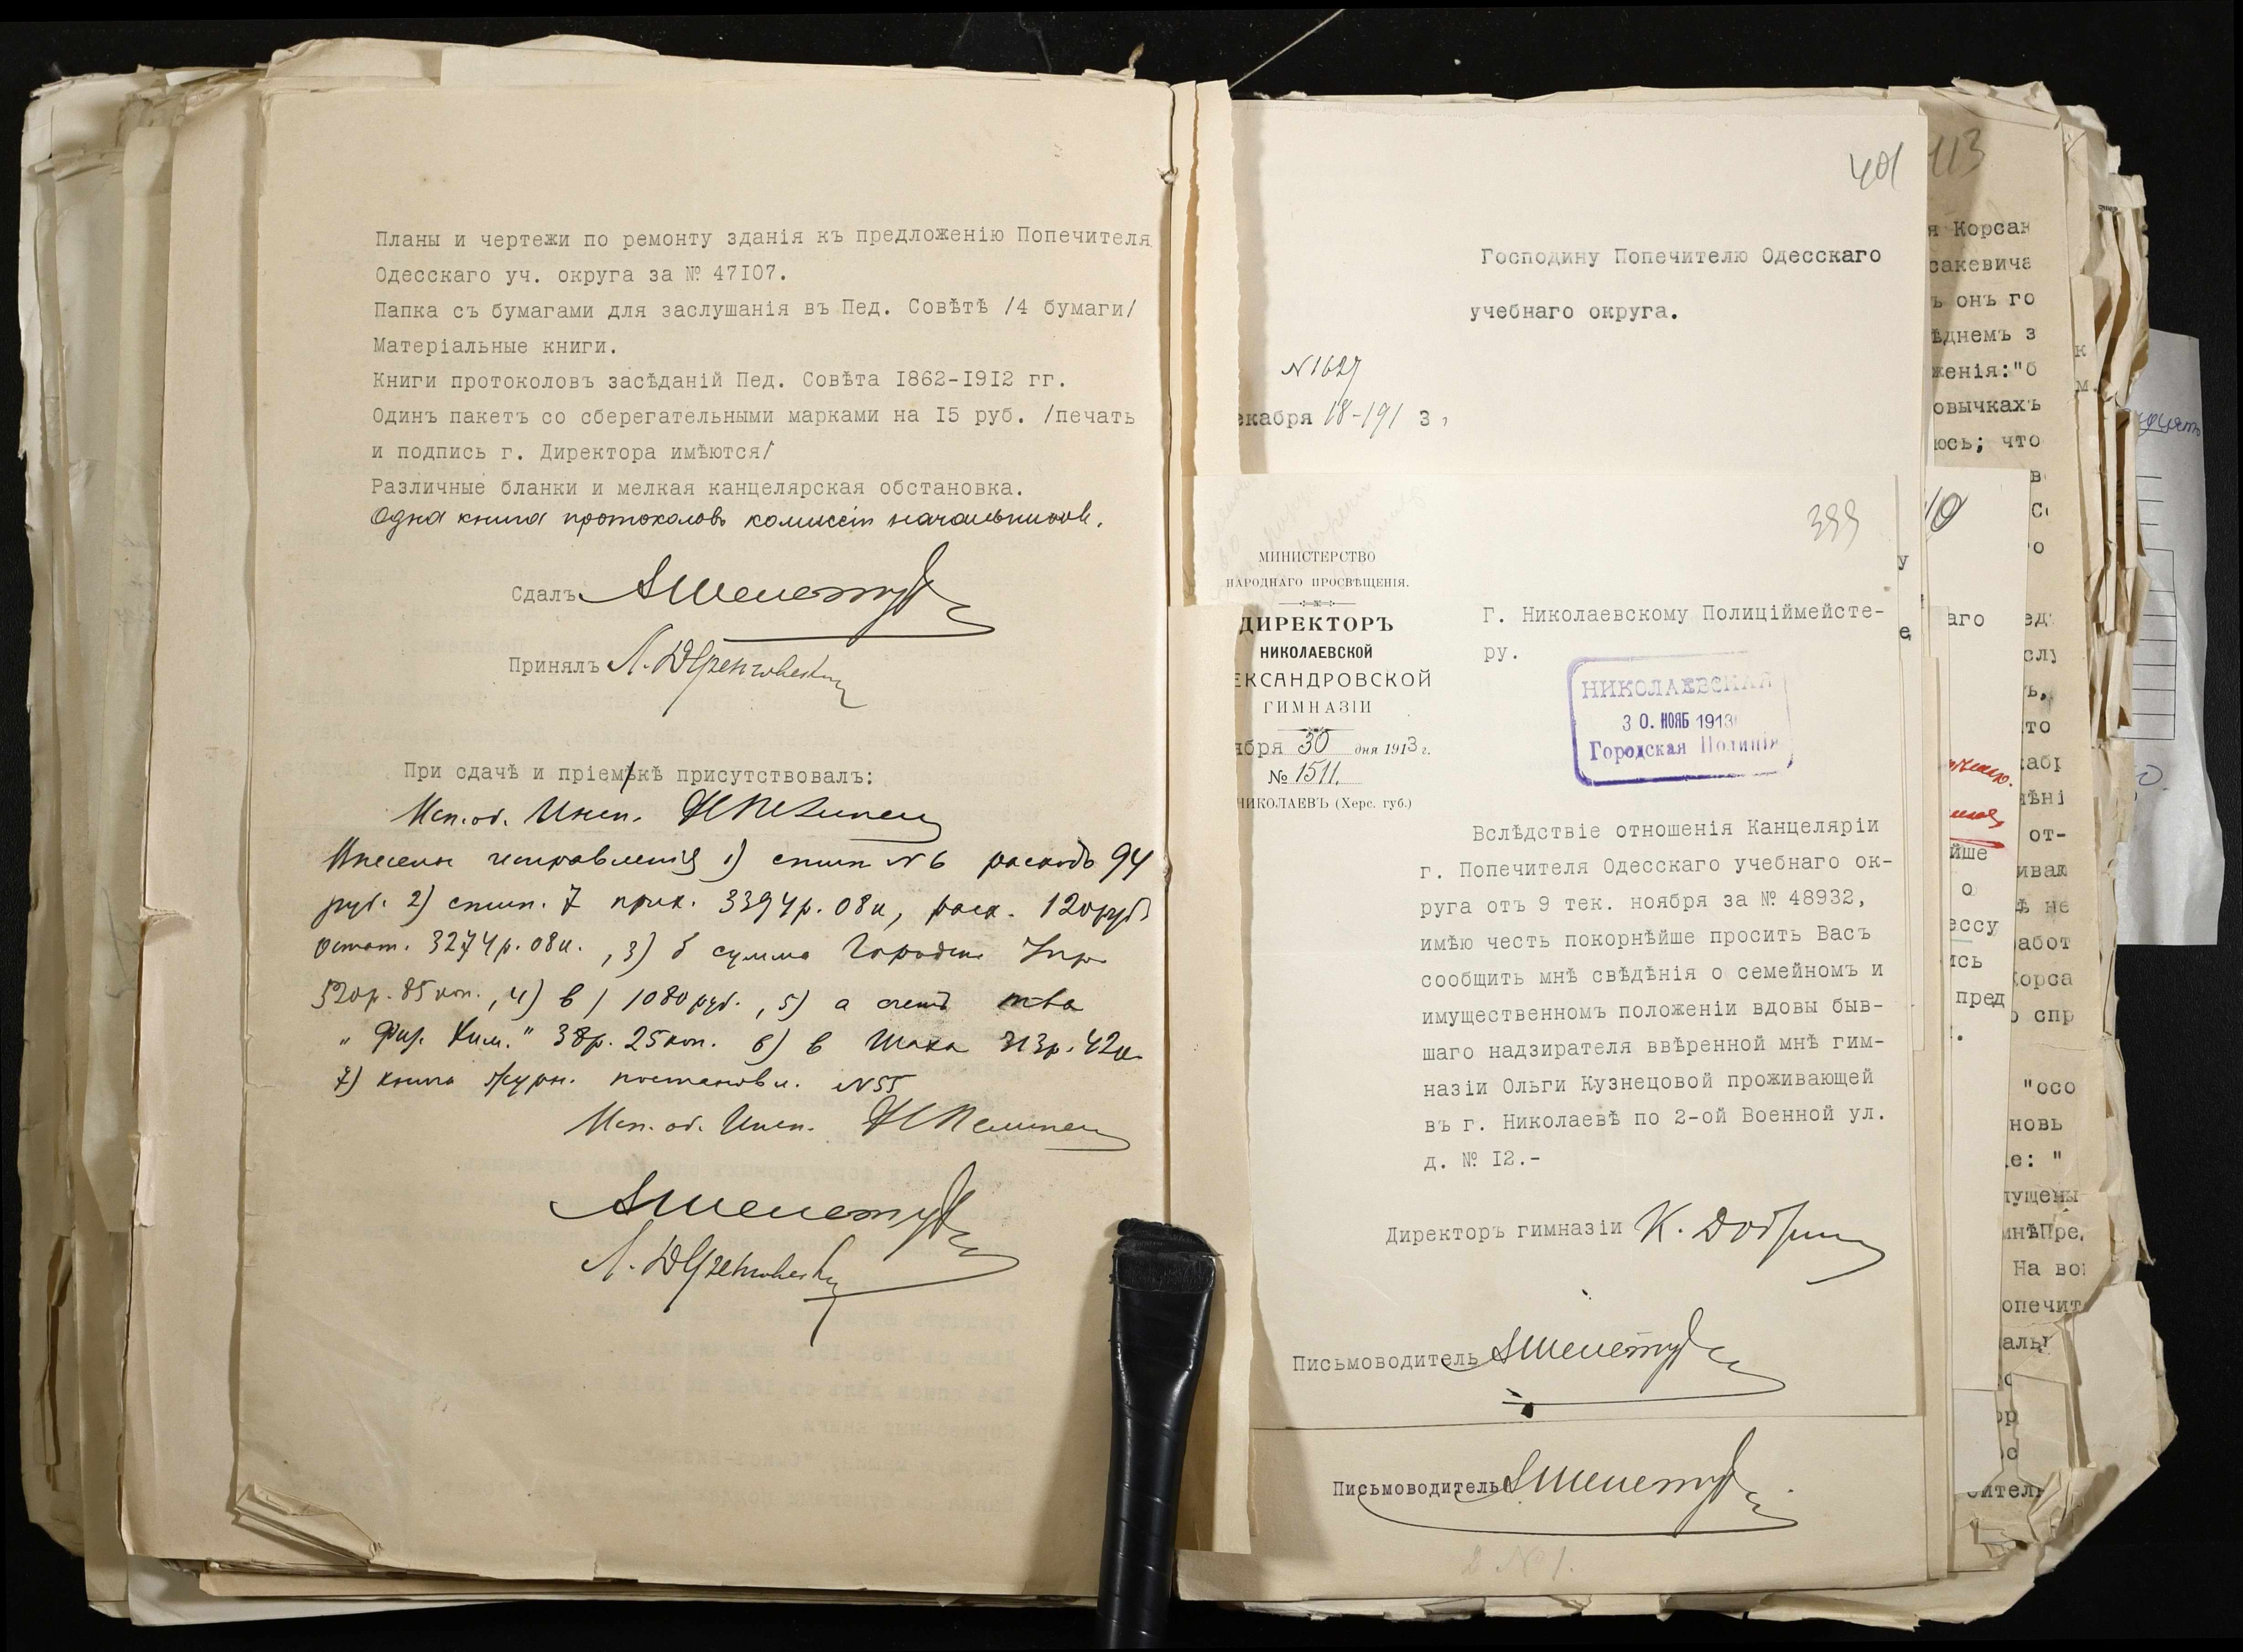 Планы и чертежи по ремонту зданія къ предложенію Попечителя
Одесскаго уч. округа за № 47I07.
Папка съ бумагами для заслушанія въ Пед. Совѣтѣ /4 бумаги/
Матеріальные книги.
Книги протоколовъ засѣданій Пед. Совѣта I862-I9I2 гг.
Одинъ пакетъ со сберегательными марками на I5 руб. /печать
и подпись г. Директора имѣются/
Различные бланки и мелкая канцелярская обстановка.
Одна книга протоколовъ комиссіи
Сдалъ
Принялъ Л.
При сдачѣ и пріемкѣ присутствовалъ:
Исп. об. Инсп.
исправленія 1) стип № 6 расходъ 94
руб. 2) стип. 7 прих. 3394р. 08к, расх. 120руб
Остат. 3274р. 08к., 3) б сумма Городск Упр
520р. 85коп., 4) в) 1080 руб., 5) а счетъ т-ва
" Физ. Хим." 38р. 25коп. 6) в 313р. 42к
7) книга журн. постановл. № 55
Исп. об. Инсп.
Л.
401
Господину Попечителю Одесскаго
учебнаго округа.
№ 1627
екабря 18-191 3
399
МИНИСТЕРСТВО
НАРОДНАГО ПРОСВѢЩЕНІЯ.
ДИРЕКТОРЪ
НИКОЛАЕВСКОЙ
ЕКСАНДРОВСКОЙ
ГИМНАЗІИ
ября 30 дня 1913 г.
№ 1511.
НИКОЛАЕВЪ (Херс. губ.)
Г. Николаевскому Полиціймейсте-
ру.
НИКОЛАЕВСКАЯ
30. НОЯБ 1913
Городская Полиція
Вслѣдствіе отношенія Канцеляріи
г. Попечителя Одесскаго учебнаго ок-
руга отъ 9 тек. ноября за № 48932,
имѣю честь покорнѣйше просить Васъ
сообщить мнѣ свѣдѣнія о семейномъ и
имущественномъ положеніи вдовы быв-
шаго надзирателя ввѣренной мнѣ гим-
назіи Ольги Кузнецовой проживающей
въ г. Николаевѣ по 2-ой Военной ул.
д. № I2.-
Директоръ гимназіи К.
Письмоводитель
Письмоводитель
113
я Корсак
сакевича
ъ онъ го
ѣднемъ з
женія:"б
овычкахъ
юсь; что
аго
йше
о
ессу
ись
пред
"осо
новь
е: "
пущены
мнѣПре
На во
опечит